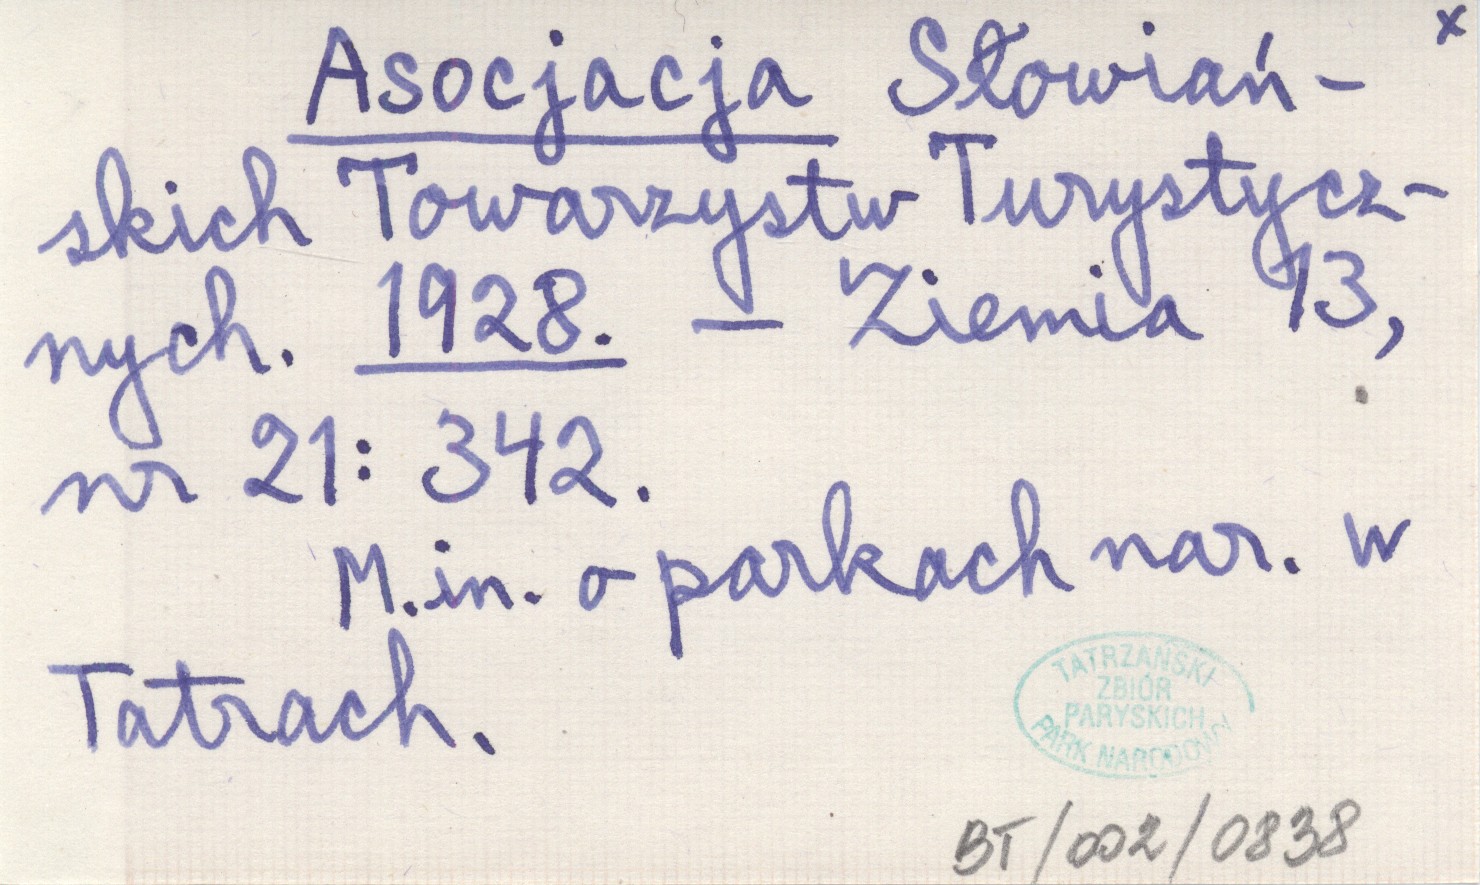 x
Asocjacja Słowiań-
skich Towarzystw Turystycz-
nych. 1928. — Ziemia 13,
nr 21: 342.
M.in. o parkach nar. w
Tatrach.
TATRZAŃSKI
ZBIÓR
PARYSKICH
PARK NARODOWY
BT/002/0838